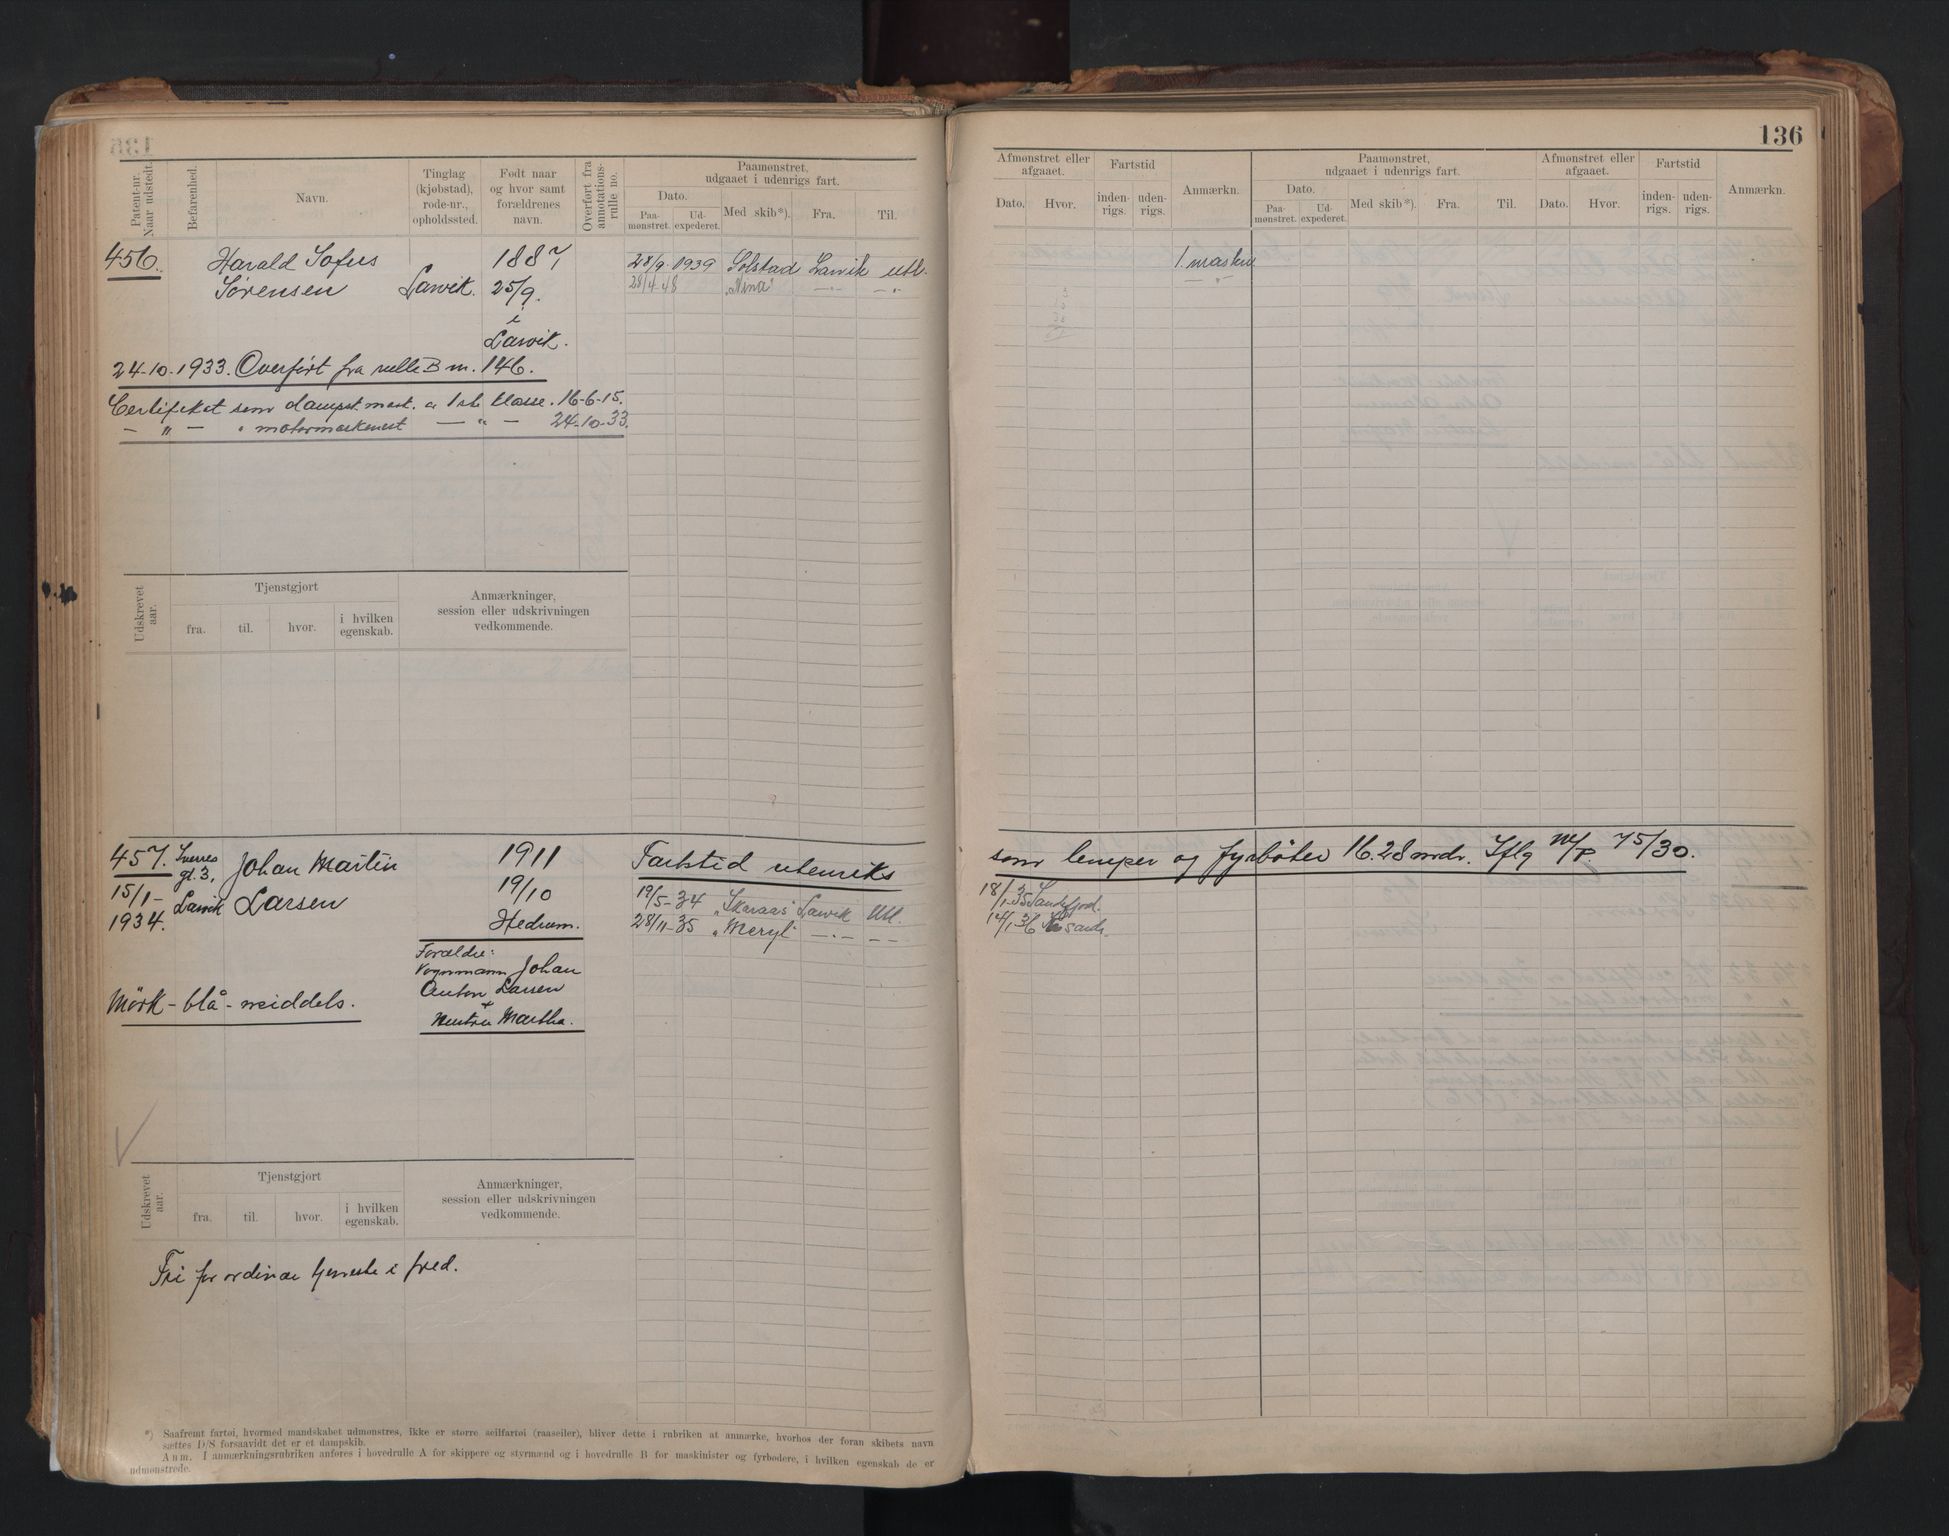 136
Patent-nr. Naar udstedt.
Befarenhed.
Navn.
Tinglag (kjøbstad), rode-nr., opholdssted.
Født naar og hvor samt forældrenes navn.
Overført fra annotations-rulle no.
Paamønstret, udgaaet i udenrigs fart.
Dato.
Paa-mønstret.
Ud-expederet.
Med skib*).
Fra.
Til.
Afmønstret eller afgaaet.
Dato.
Hvor.
Fartstid
inden-rigs.
uden-rigs.
Anmærkn.
Paamønstret, udgaaet i udenrigs fart.
Dato.
Paa-mønstret.
Ud-expederet.
Med skib*).
Fra.
Til.
Afmønstret eller afgaaet.
Dato.
Hvor.
Fartstid
inden-rigs.
uden-rigs.
Anmærkn.
456. Harald Sofus 1887 28/9 1939 Solstad Larvik utl. 1 maskn
Sørensen Larvik. 25/9. 28/4-48 "Nina" —"— —"—
i
Larvik.
24-10-1933. Overført fra rulle B nr. 146.
Certifikat som dampsk.mask. a 1ste klasse. 16-6-15.
— " — " motormaskinist — " — 24-10-33.
Udskrevet aar.
Tjenstgjort
fra.
til.
hvor.
i hvilken egenskab.
Anmærkninger, session eller udskrivningen vedkommende.
457. Sverres gt. 3, Johan Martin 1911 Fartstid utenriks som lemper og fyrbøter 16.28 mdr. Iflg 75/30.
15/1- Larvik Larsen 19/10 19/5-34 "Skaraas" Larvik Utl. 18/1-35 Sandefjord.
1934. Hedrum. 28/11-35 "Meryl" —"— —"— 14/1 36 Kr sand.
Forældre:
Vognmann Johan
Anton Larsen
+
Hustru Martha.
Mörk - blå - middels.
Udskrevet aar.
Tjenstgjort
fra.
til.
hvor.
i hvilken egenskab.
Anmærkninger, session eller udskrivningen vedkommende.
Fri for ordinær tjeneste i fred.
*) Saafremt fartøi, hvormed mandskabet udmønstres, ikke er større seilfartøi (raaseiler), bliver dette i rubriken at anmærke, hvorhos der foran skibets navn
sættes D/S forsaavidt det er et dampskib.
Anm. I anmærkningsrubriken anføres i hovedrulle A for skippere og styrmænd og i hovedrulle B for maskinister og fyrbødere, i hvilken egenskab de er
udmønstrede.